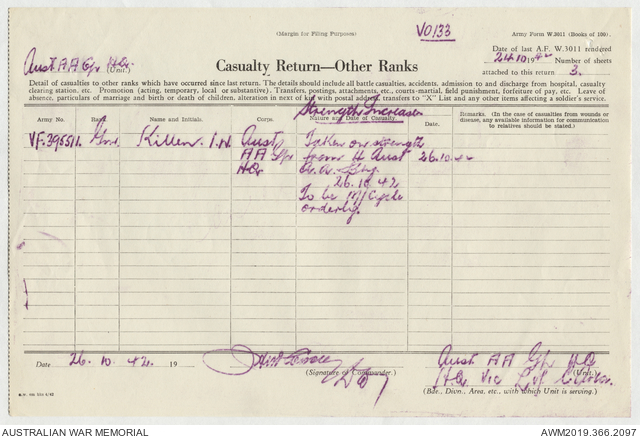 (Margin for Filing Purposes)
VO133
Army Form W.3011 (Books of 100).
Aust. A A Gp. H.Q.
(Unit.)
Casualty Return—Other Ranks
Date of last A.F. W.3011 rendered
24.10.1942
Number of sheets
attached to this return 3.
Detail of casualties to other ranks which have occurred since last return. The details should include all battle casualties, accidents, admission to and discharge from hospital, casualty
clearing station, etc. Promotion (acting, temporary, local or substantive). Transfers, postings, attachments, etc., courts-martial, field punishment, forfeiture of pay, etc. Leave of
absence, particulars of marriage and birth or death of children, alteration in next of kin with postal address, transfers to "X" List and any other items affecting a soldier's service.
Strength Increases
Army No. Rank Name and Initials. Corps. Nature and Date of Casualty. Date. Remarks. (In the case of casualties from wounds or
disease, any available information for communication
to relatives should be stated.)
VF.395511. Gnr. Killen. I.N. Aust Taken on strength
A A Gp from H Aust 26.10.42
H.Q. A.A.
26.10.42
To be M/Cycle
orderly.
Date 26. 10. 42. 19
(Signature of Commander.)
Aust A A Gp H Q
(Unit.)
H.Q. Vic L of C Area.
(Bde., Divn., Area, etc., with which Unit is serving.)
AUSTRALIAN WAR MEMORIAL
AWM2019.366.2097